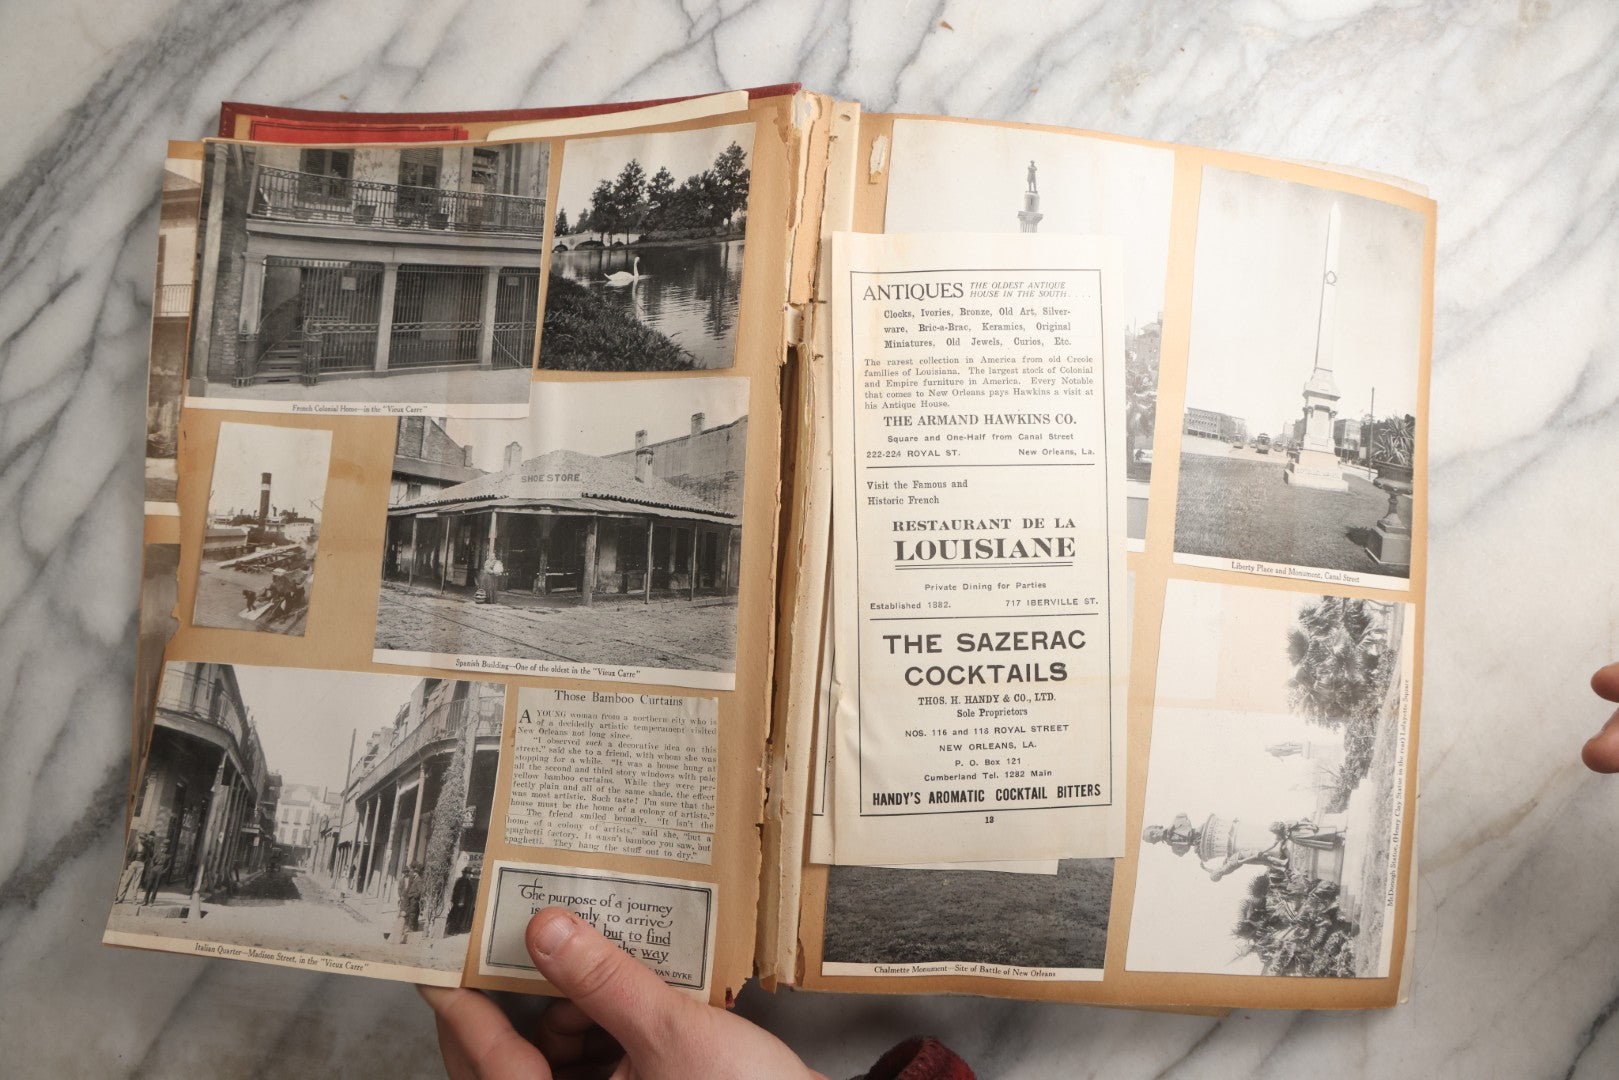 French Colonial Home—in the "Vieux Carre"
SHOE STORE
Spanish Building—One of the oldest in the "Vieux Carre"
Italian Quarter—Madison Street, in the "Vieux Carre"
Those Bamboo Curtains
A YOUNG woman from a northern city who is
of a decidedly artistic temperament visited
New Orleans not long since.
"I observed such a decorative idea on this
street," said she to a friend, with whom she was
stopping for a while. "It was a house hung at
all the second and third story windows with pale
yellow bamboo curtains. While they were per-
fectly plain and all of the same shade, the effect
was most artistic. Such taste! I'm sure that the
house must be the home of a colony of artists."
The friend smiled broadly. "It isn't the
home of a colony of artists," said she, "but a
spaghetti factory. It wasn't bamboo you saw, but
spaghetti. They hang the stuff out to dry."
The purpose of a journey
is only to arrive
but to find
the way
VAN DYKE
ANTIQUES THE OLDEST ANTIQUE
HOUSE IN THE SOUTH....
Clocks, Ivories, Bronze, Old Art, Silver-
ware, Bric-a-Brac, Keramics, Original
Miniatures, Old Jewels, Curios, Etc.
The rarest collection in America from old Creole
families of Louisiana. The largest stock of Colonial
and Empire furniture in America. Every Notable
that comes to New Orleans pays Hawkins a visit at
his Antique House.
THE ARMAND HAWKINS CO.
Square and One-Half from Canal Street
222-224 ROYAL ST. New Orleans, La.
Visit the Famous and
Historic French
RESTAURANT DE LA
LOUISIANE
Private Dining for Parties
Established 1882. 717 IBERVILLE ST.
THE SAZERAC
COCKTAILS
THOS. H. HANDY & CO., LTD.
Sole Proprietors
NOS. 116 and 118 ROYAL STREET
NEW ORLEANS, LA.
P. O. Box 121
Cumberland Tel. 1282 Main
HANDY'S AROMATIC COCKTAIL BITTERS
13
Chalmette Monument—Site of Battle of New Orleans
Liberty Place and Monument, Canal Street
McDonogh Statue, (Henry Clay Statue in the rear) Lafayette Square